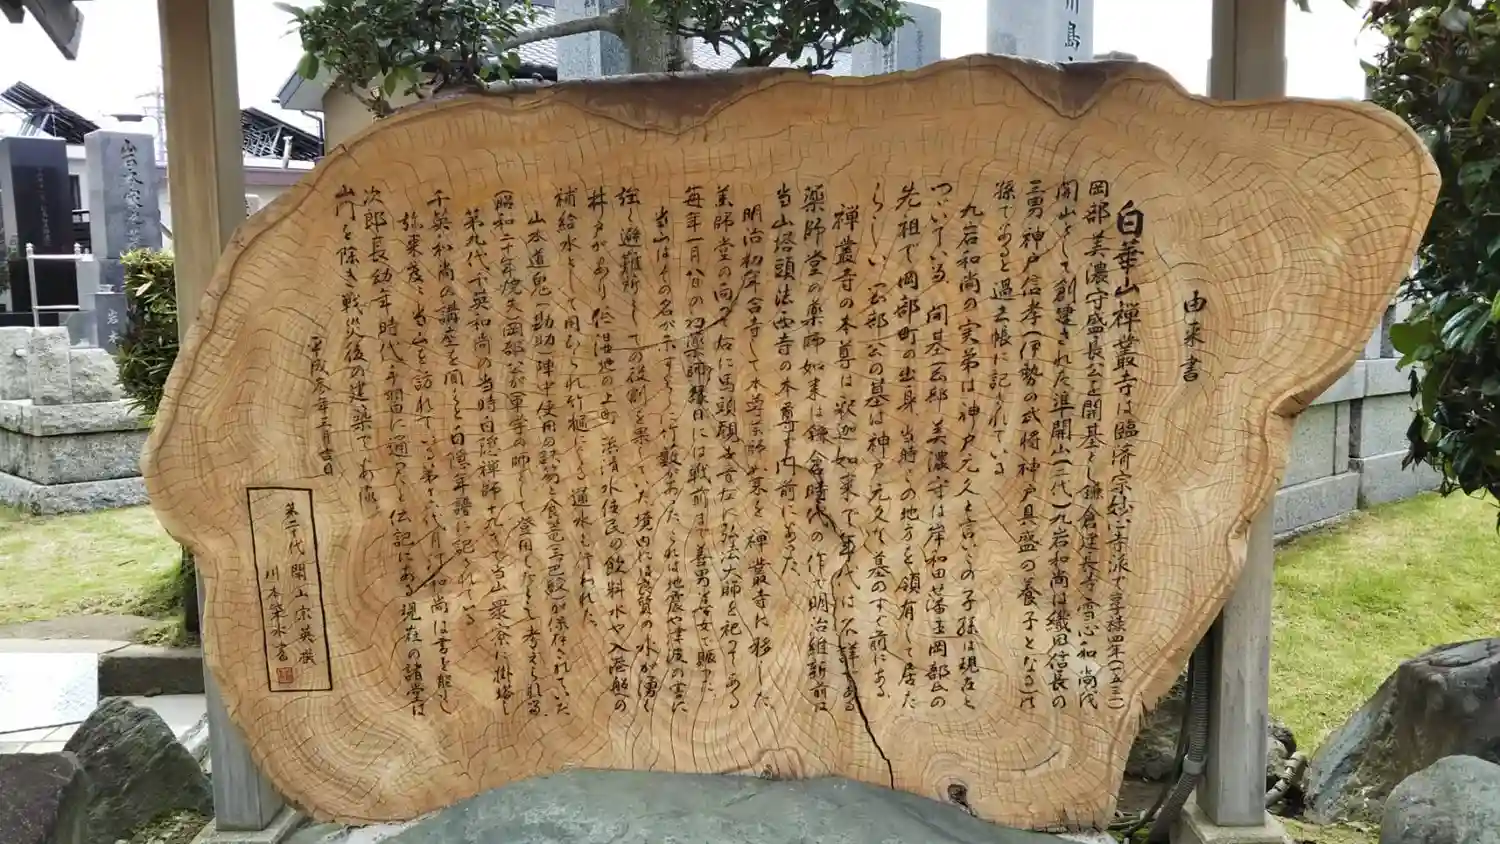 由来書
白華山禅叢寺は臨済宗妙心寺派で享禄四年(一五三一)
岡部美濃守盛長公を開基とし鎌倉建長寺雪心和尚代
開山として創建された準開山(二代)九岩和尚は織田信長の
三男神戸信孝(伊勢の武将神戸具盛の養子となる)の
孫であると過去帳に記されている
九岩和尚の実弟は神戸元久と言いこの子孫は現在と
つづいている当開基岡部美濃守は岸和田藩主岡部氏の
先祖で岡部町の出身当時この地方を領有して居た
らしい岡部公の墓は神戸元久の墓のすぐ前にある
禅叢寺の本尊は釈迦如来で年代は不詳である
薬師堂の薬師如来は鎌倉時代の作で明治維新前は
当山塔頭法西寺の本尊で門前にあった
明治初年合寺して本尊
禅叢寺に移した
薬師堂の向って右に馬頭観世音左に弘法大師を祀ってある
毎年一月八日の初薬師縁日には戦前まで善男善女で賑った
当山はその名が示すように竹藪であったこれは地震や津波の害に
強く避難所としての役割を果していた境内には良質の水が湧く
井戸があり低湿地の上町浜清水住民の飲料水や入港船への
補給水として用いられ竹樋による通水も行われた
山本道鬼(勘助)陣中使用の
保存されていた
(昭和二十年焼失)岡部公が軍学の師として登用したものと考えられる
第九代千英和尚の当時白隠禅師十九才で当山衆寮に掛塔し
千英和尚の講座を聞くと白隠年譜に記されている
弥来度々当山を訪れている第十六代月
和尚は書を能くし
次郎長幼年時代手習に通ったと伝記にある現在の諸堂は
山門を除き戦災後の建築である
平成参年三月吉日
第二代開山宗英
川本翠水書
川島